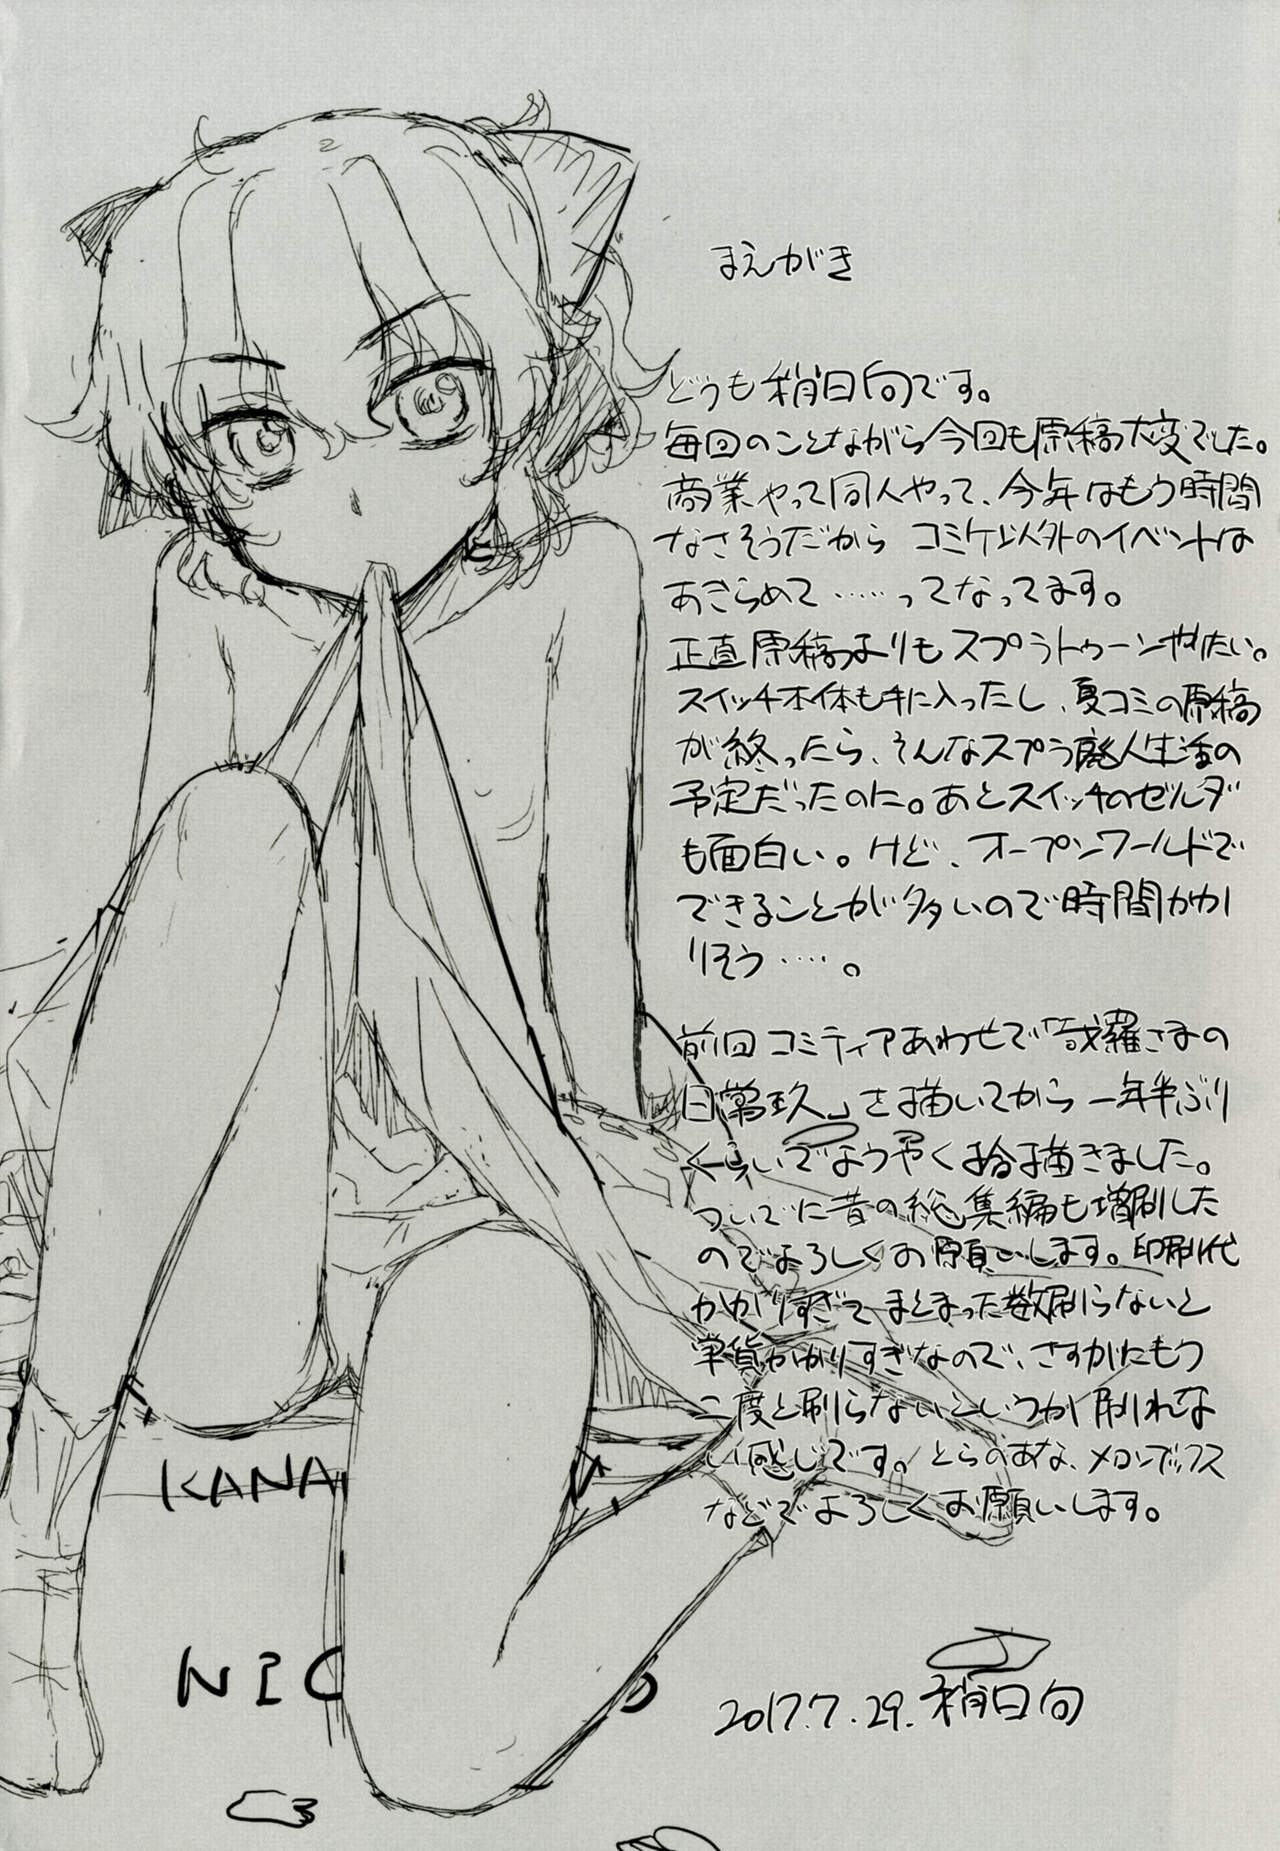 まえがき
どうも稍日向です。
毎回のことながら今回も原稿大変でした。
商業やって同人やって、今年はもう時間
なさそうだから コミケ以外のイベントは
あきらめて……ってなってます。
正直原稿よりもスプラトゥーンやりたい。
スイッチ本体も手に入ったし、夏コミの原稿
が終ったら、そんなスプラ廃人生活の
予定だったのに。あとスイッチのゼルダ
も面白い。けど、オープンワールドで
できることが多いので時間かか
りそう……。
前回コミティアあわせで「哉羅さまの
日常玖」を描いてから一年半ぶり
くらいでようやく拾描きました。
ついでに昔の総集編も増刷した
のでよろしくお願いします。印刷代
かかりすぎてまとまった数刷らないと
単価かかりすぎなので、さすがにもう
二度と刷らないというか刷れな
い感じです。とらのあな、メロンブックス
などでよろしくお願いします。
KANA
NIC
2017.7.29. 稍日向